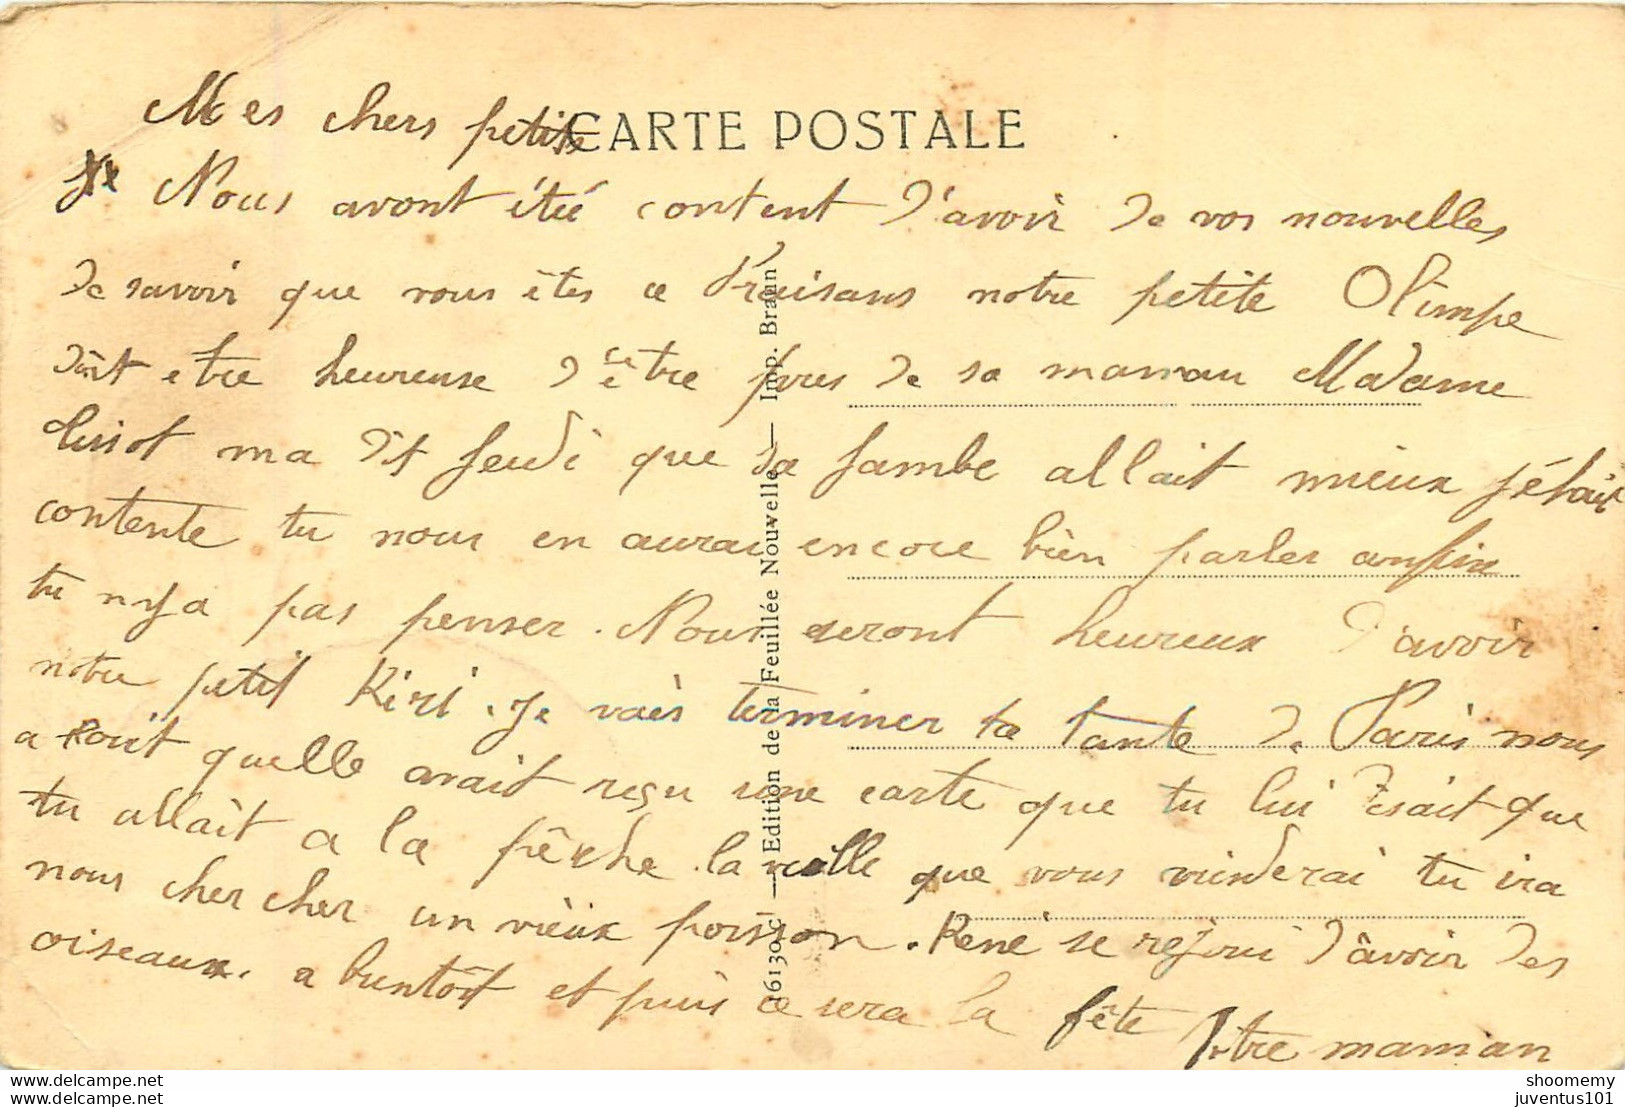 Mes chers petits
CARTE POSTALE
Nous avont étié content d'avoir de vos nouvelles
de savoir que vous êtes ce notre petite Olimpe
doit etre heureuse d'être pres de sa maman Madame
ma dit jeudi que sa jambe allait mieux j'étais
contente tu nous en aurai encore bien parler anfin
tu n'y a pas penser. Nous seront heureux d'avoir
notre petit Kiri. je vais terminer ta tante de Paris nous
a quelle avait reçu une carte que tu lui disait que
tu allait a la pêche la veille que vous vienderai tu ira
nous chercher un vieux poisson. René se rejoui d'avoir des
oiseaux. a bientôt et puis ce sera la fête Votre maman
36130 c. — Edition de la Feuillée Nouvelle — Imp. Braun
shoomemy
juventus101